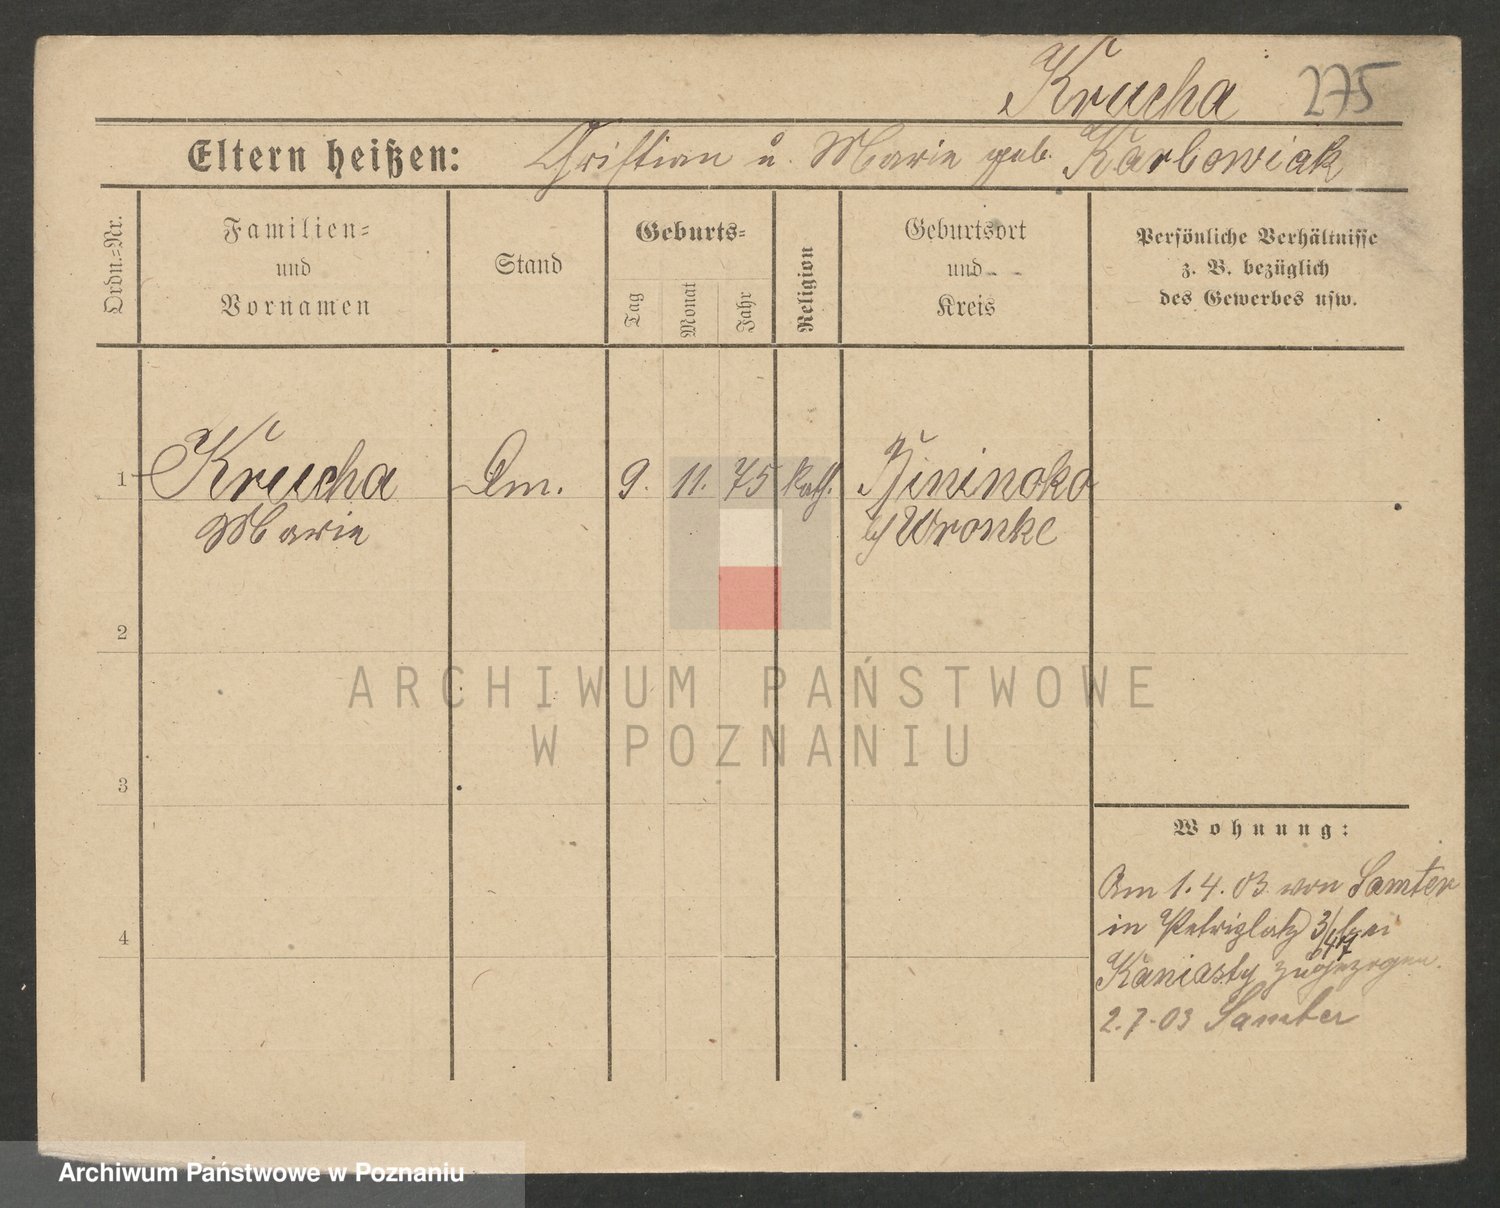 Krucha 275
Eltern heißen: Christian u. Marie geb. Karbowiak
Ordn.-Nr.
Familien-
und
Vornamen
Stand
Geburts-
Tag
Monat
Jahr
Religion
Geburtsort
und
Kreis
Persönliche Verhältnisse
z. B. bezüglich
des Gewerbes usw.
1 Krucha 9. 11. 75 kath.
Marie Wronke
2
3
4
Wohnung:
Am 1.4.03 von Samter
in Petriplatz 3/4 bei
Kaniasty zugezogen.
2.7.03 Samter
ARCHIWUM PAŃSTWOWE
W POZNANIU
Archiwum Państwowe w Poznaniu